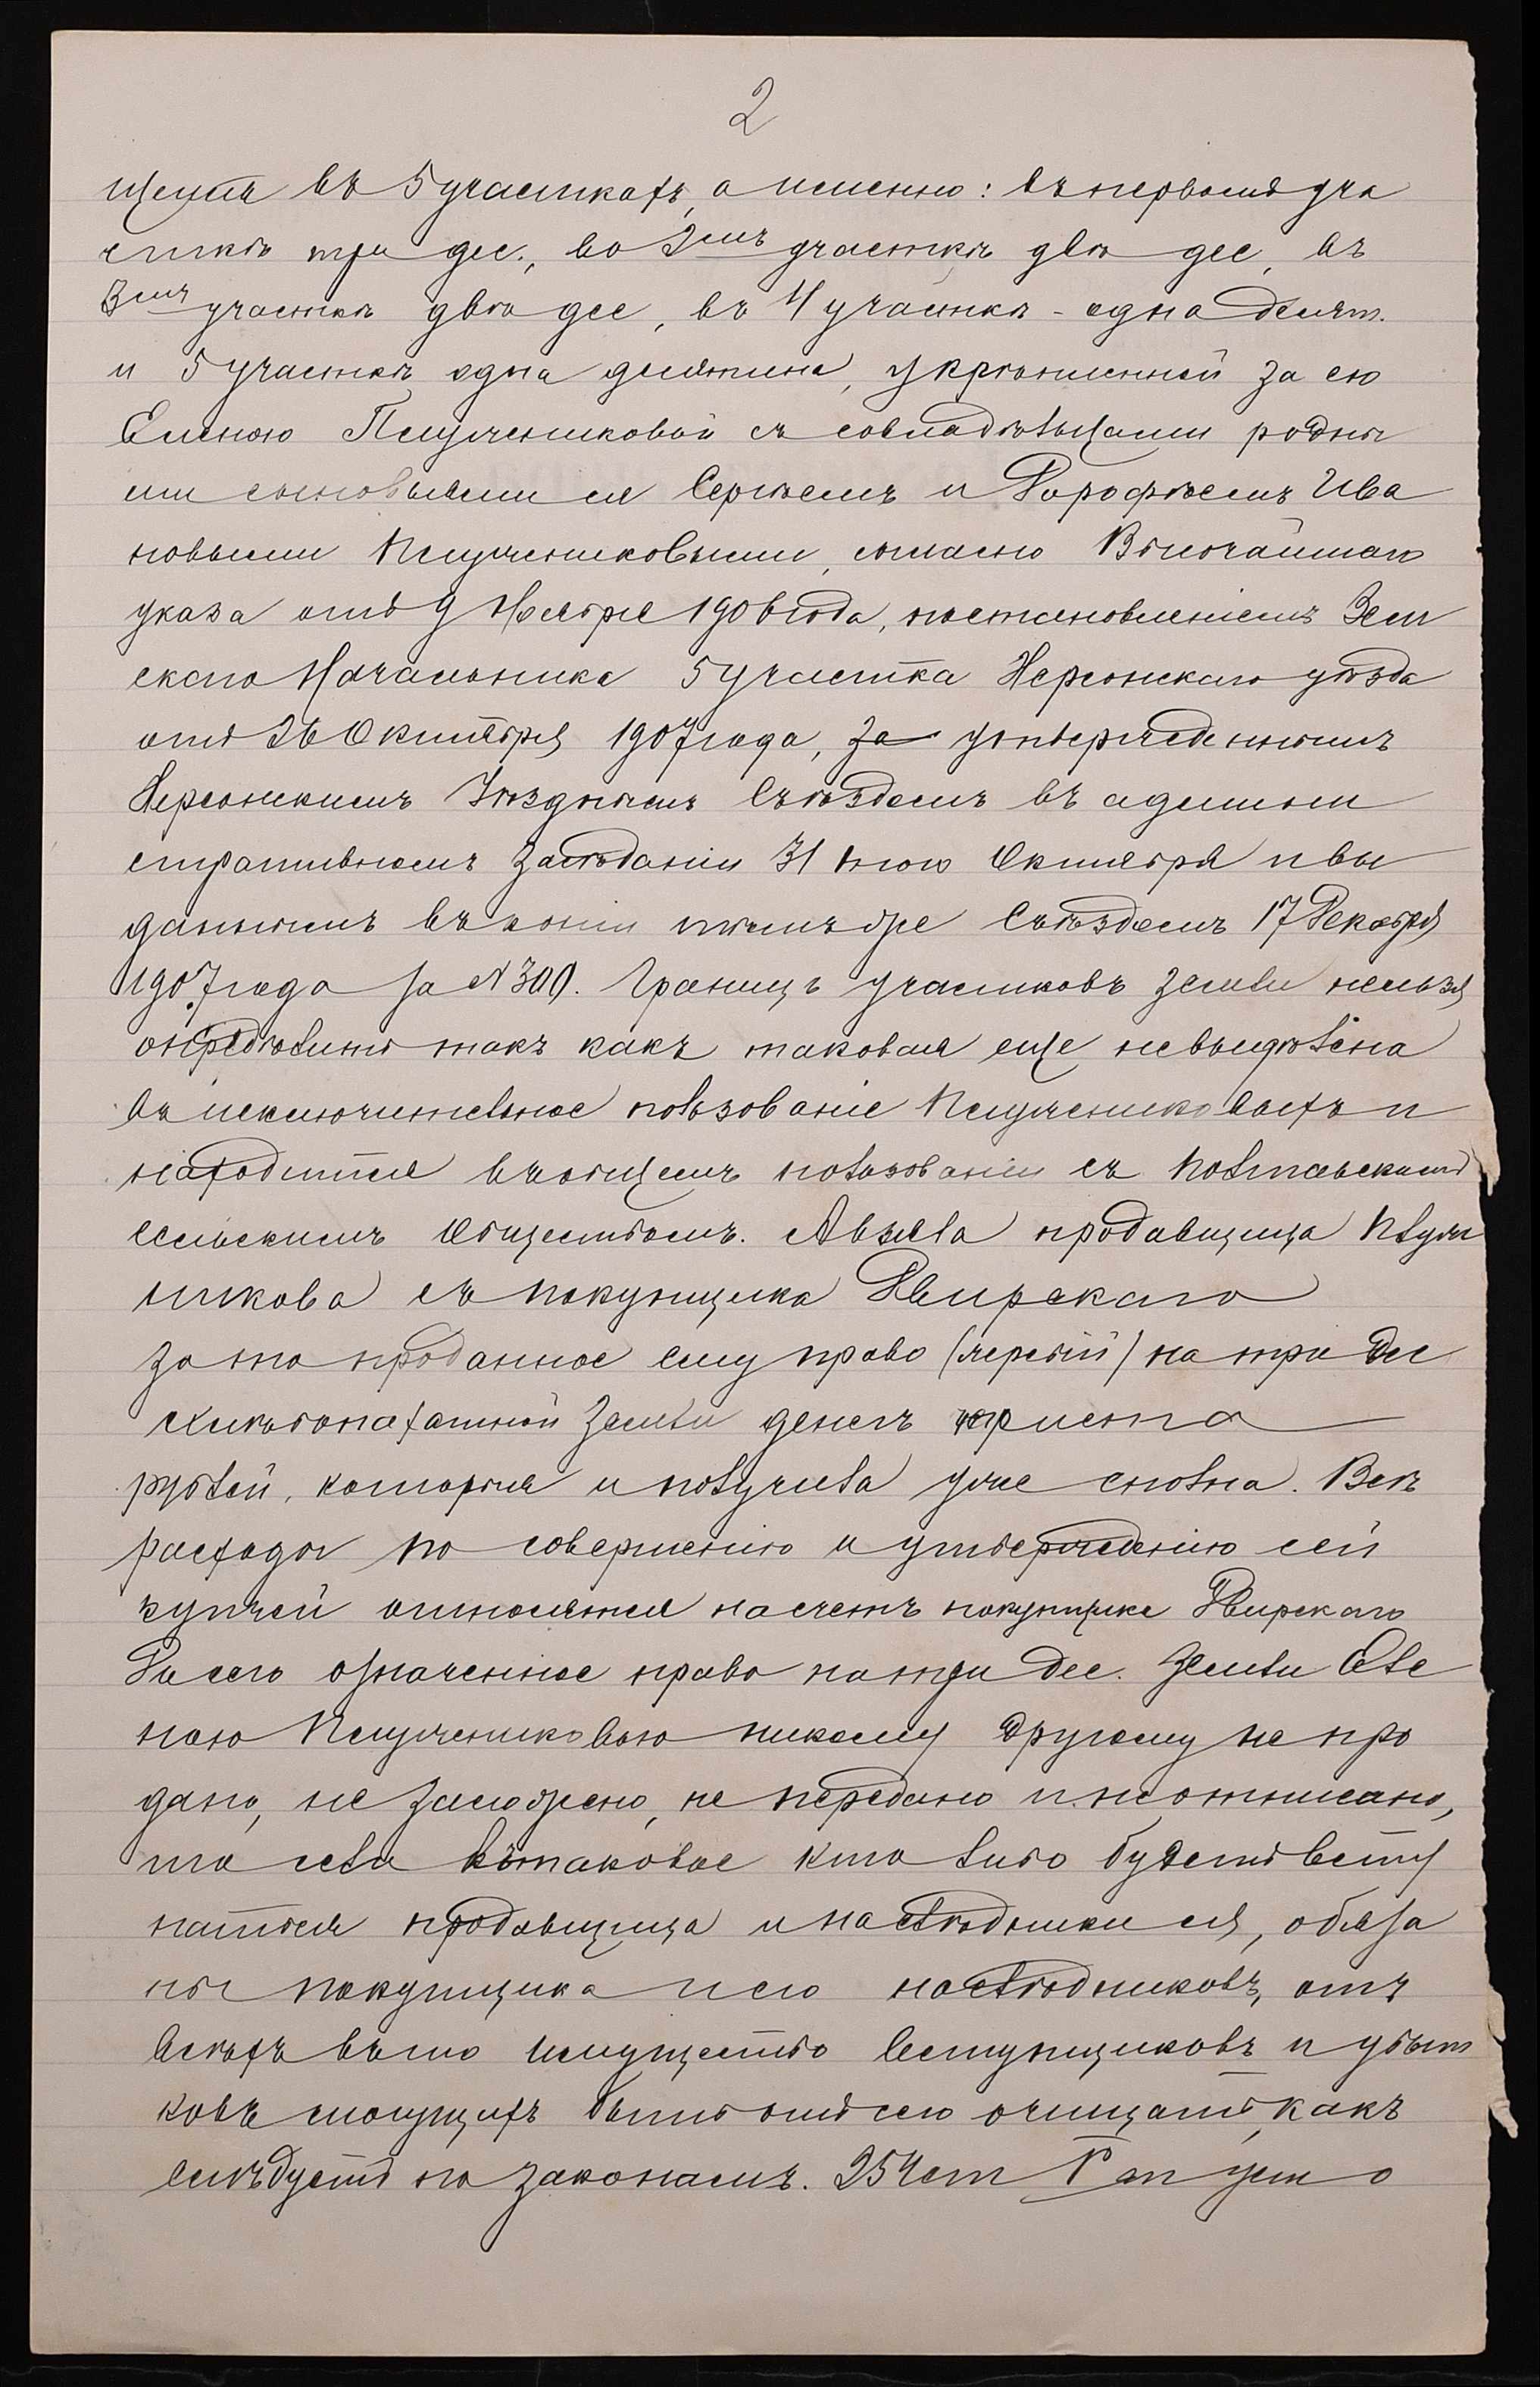 2
щейся въ 5 участкахъ, а именно: въ первомъ уча
сткѣ три дес., во 2мъ участкѣ двѣ дес, въ
3мъ участкѣ двѣ дес, въ 4 участкѣ - одна десят.
и 5 участкѣ одна десятина, укрѣпленной за ею
Еленою Псущениковой съ совладѣльцами родны
ми сыновьями ея Сергѣемъ и Дорофѣемъ Ива
новыми , согласно Высочайшаго
указа отъ 9 Ноября 1906 года, постановленіемъ Зем
скаго Начальника 5 участка Херсонскаго уѣзда
отъ 26 Октября 1907 года, за утвержденнымъ
Херсонскимъ Уѣзднымъ Съѣздомъ въ админи
стративномъ засѣданіи 31 того Октября и вы
даннымъ въ копіи тѣмъ же Съѣздомъ 17 Декабря
1907 года за №300. Границъ участковъ земли нельзя
опредѣлить такъ какъ таковая еще не выдѣлена
въ исключительное пользованіе и
находится въ общемъ пользованіи съ Полтавскимъ
сельскимъ Обществомъ. А взяла продавщица
никова съ покупщика Двирскаго
за то проданное ему право (жеребій) на три дес
земли денегъ триста
рублей, которыя и получила уже сполна. Всѣ
расходы по совершенію и утвержденію сей
купчей относятся на счетъ покупщика Двирскаго
До сего означенное право на три дес. земли Еле
ною никому другому не про
дано, не заложено, не передано и не отписано,
то если въ таковое кто либо будетъ всту
паться продавщица и наслѣдники ея, обяза
ны покупщика и его наслѣдниковъ, отъ
всѣхъ въ то имущество вступщиковъ и убыт
ковъ могущихъ быть отъ сего очищать, какъ
слѣдуетъ по законамъ. 254 ст Уст о